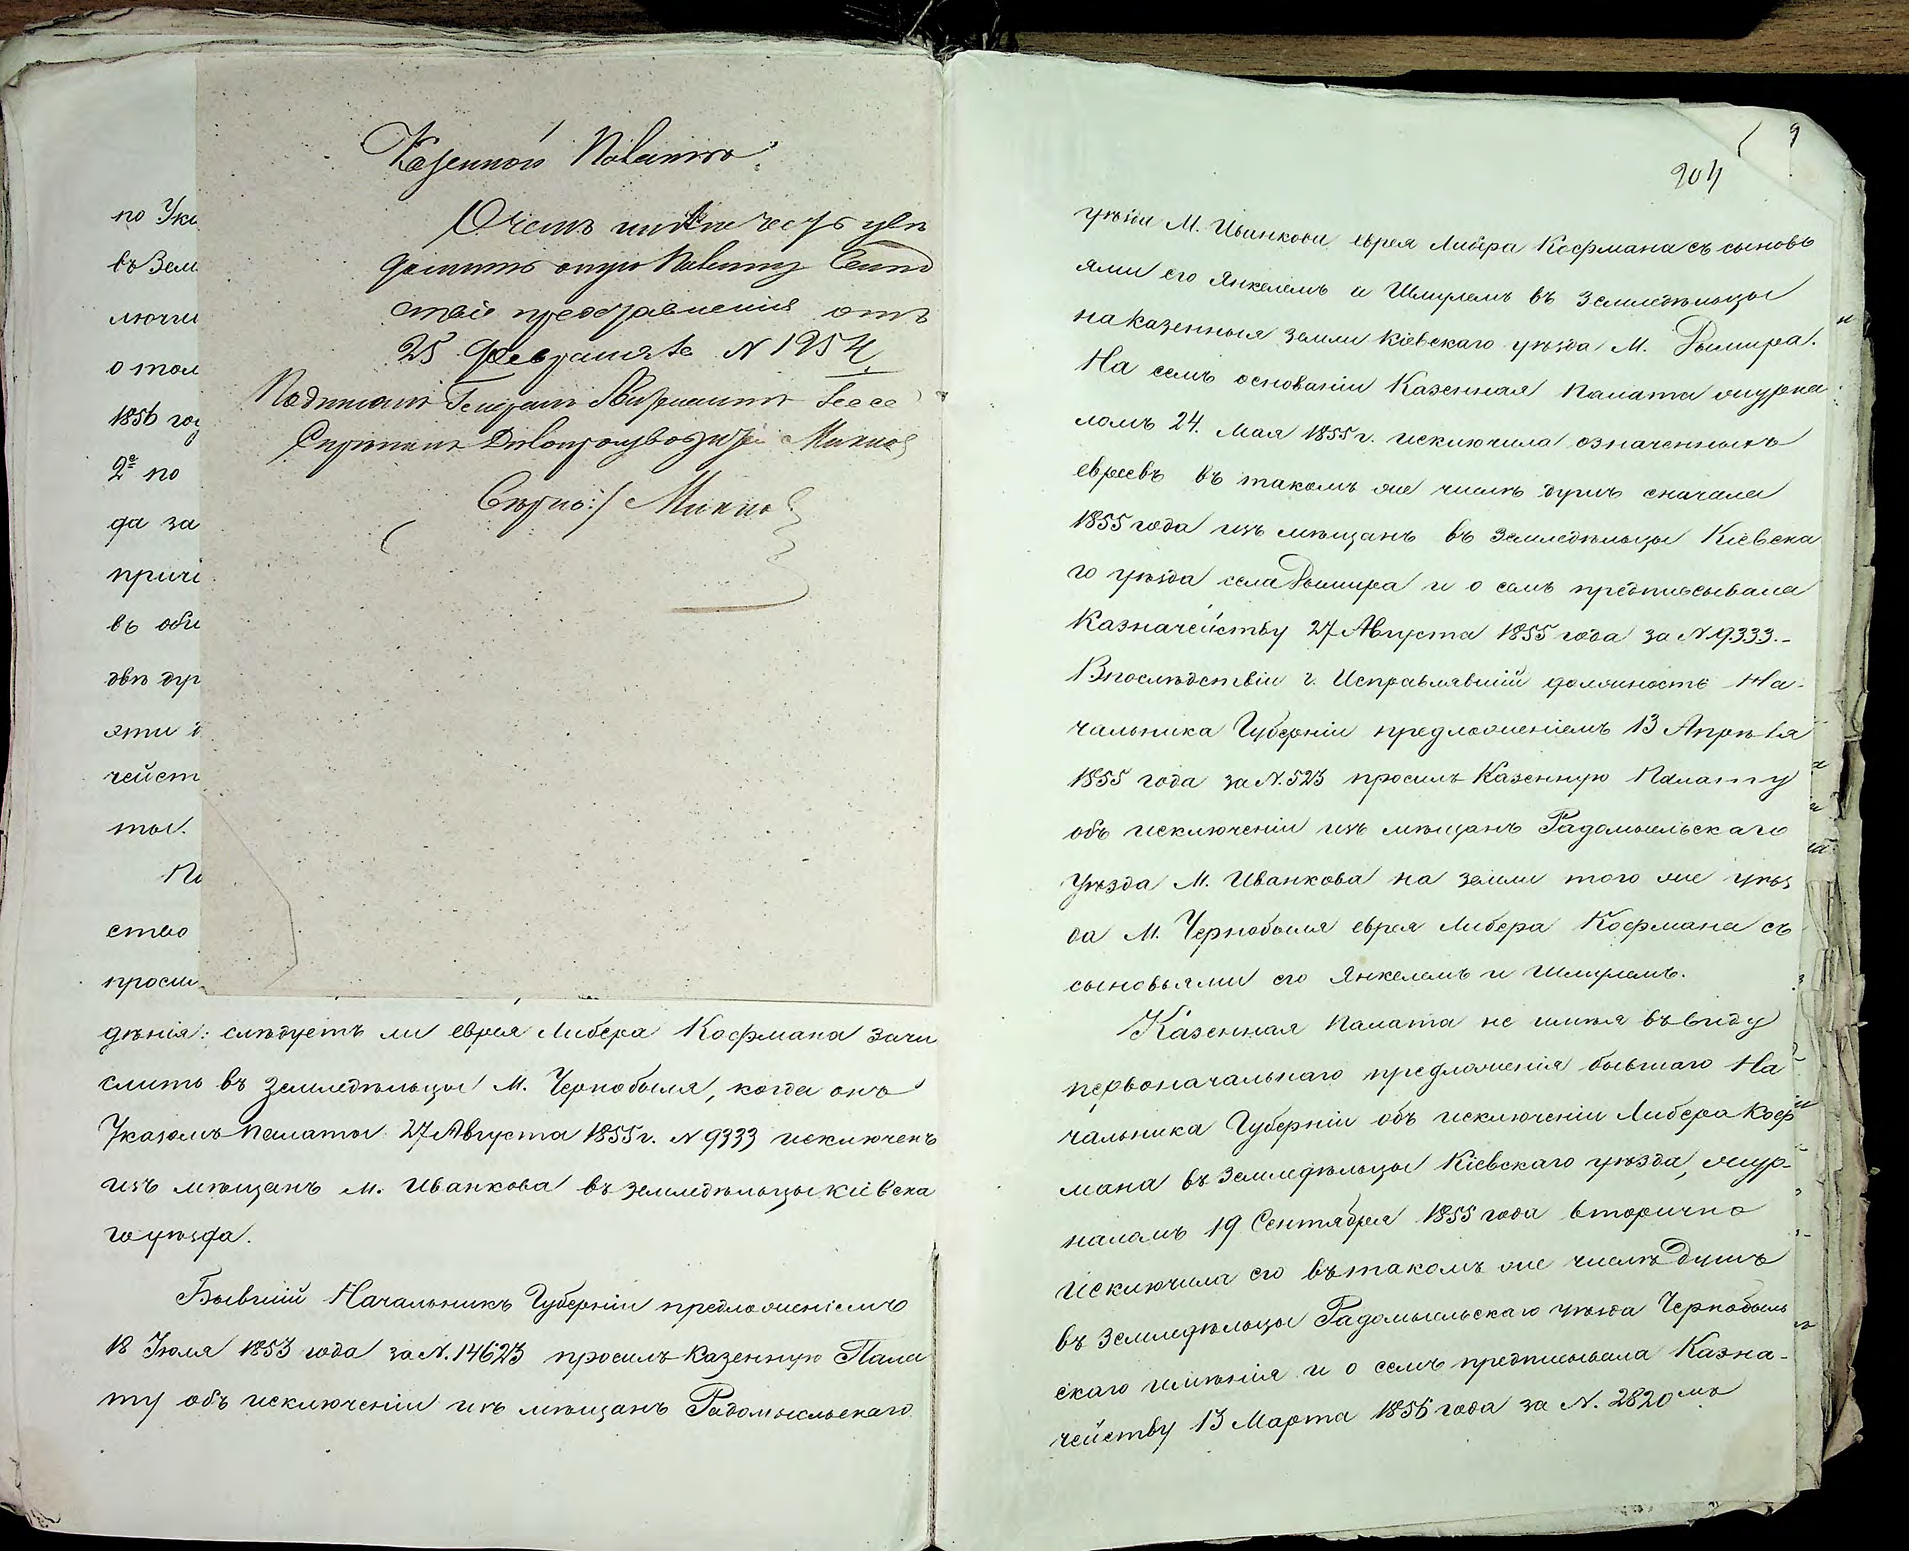 Казенной Палате.
О чемъ имѣю честь увѣ
домить оную Палату
представленія отъ
25 Февраля № 1254,
Подписалъ Генералъ
Скрѣпилъ Дѣлопроизводитель
Вѣрно:/
по Ука
въ Зем
ключи
о том
1856 год
2е по
да за
причи
въ общ
двѣ ду
эти
чейст
ты.
По
ство
проси
дѣнія: слѣдуетъ ли еврея Либера Кофмана зачи
слить въ земледѣльцы М. Чернобыля, когда онъ
Указомъ Палаты 27 Августа 1855 г. № 9333 исключенъ
изъ мѣщанъ м. Иванкова въ земледѣльцы Кіевска
го уѣзда.
Бывшій Начальникъ Губерніи предложеніемъ
18 Іюля 1853 года за №. 14623 просилъ Казенную Пала
ту объ исключеніи изъ мѣщанъ Радомысльскаго
204
уѣзда М. Иванкова еврея Либера Кофмана съ сыновь
ями его Янкелемъ и Шмулемъ въ земледѣльцы
на казенныя земли Кіевскаго уѣзда М. Дымира.
На семъ основаніи Казенная Палата журна
ломъ 24. Мая 1855 г. исключила означенныхъ
евреевъ въ такомъ же числѣ душъ сначала
1855 года изъ мѣщанъ въ земледѣльцы Кіевска
го уѣзда села Дымира и о семъ предписывала
Казначейству 27 Августа 1855 года за № 9333.-
Впослѣдствіи г. Исправлявшій должность На-
чальника Губерніи предложеніемъ 13 Апрѣля
1855 года за №. 523 просилъ Казенную Палату
объ исключеніи изъ мѣщанъ Радомысльскаго
Уѣзда М. Иванкова на земли того же уѣз
да М. Чернобыля еврея Либера Кофмана съ
сыновьями его Янкелемъ и Шмулемъ.
Казенная Палата не имѣя въ виду
первоначальнаго предложенія бывшаго На
чальника Губерніи объ исключеніи Либера Коф
мана въ земледѣльцы Кіевскаго уѣзда, жур-
наломъ 19 Сентября 1855 года вторично
исключила его въ такомъ же числѣ душъ
въ земледѣльцы Радомысльскаго уѣзда Чернобыль
скаго имѣнія и о семъ предписывала Казна-
чейству 13 Марта 1856 года за №. 2820мъ